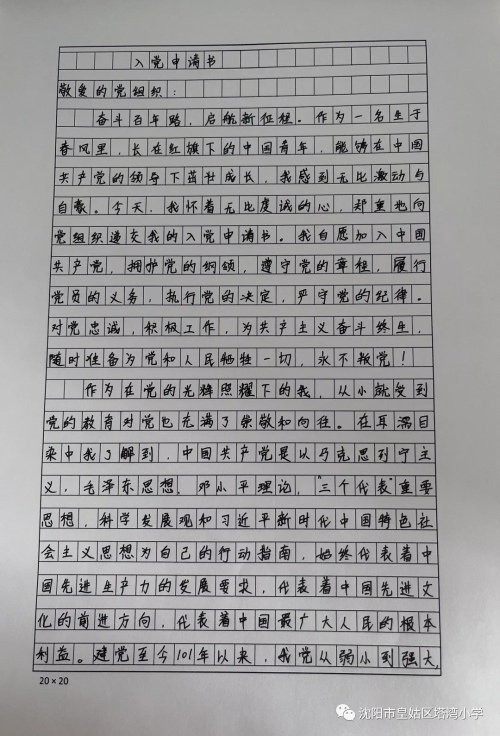 入党申请书
敬爱的党组织：
奋斗百年路，启航新征程。作为一名生于
春风里，长在红旗下的中国青年，能够在中国
共产党的领导下茁壮成长，我感到无比激动与
自豪。今天，我怀着无比虔诚的心，郑重地向
党组织递交我的入党申请书。我自愿加入中国
共产党，拥护党的纲领，遵守党的章程，履行
党员的义务，执行党的决定，严守党的纪律。
对党忠诚，积极工作，为共产主义奋斗终生，
随时准备为党和人民牺牲一切，永不叛党！
作为在党的光辉照耀下的我，从小就受到
党的教育对党也充满了崇敬和向往。在耳濡目
染中我了解到，中国共产党是以马克思列宁主
义，毛泽东思想，邓小平理论，“三个代表”重要
思想，科学发展观和习近平新时代中国特色社
会主义思想为自己的行动指南，始终代表着中
国先进生产力的发展要求，代表着中国先进文
化的前进方向，代表着中国最广大人民的根本
利益。建党至今101年以来，我党从弱小到强大，
20×20
沈阳市皇姑区塔湾小学